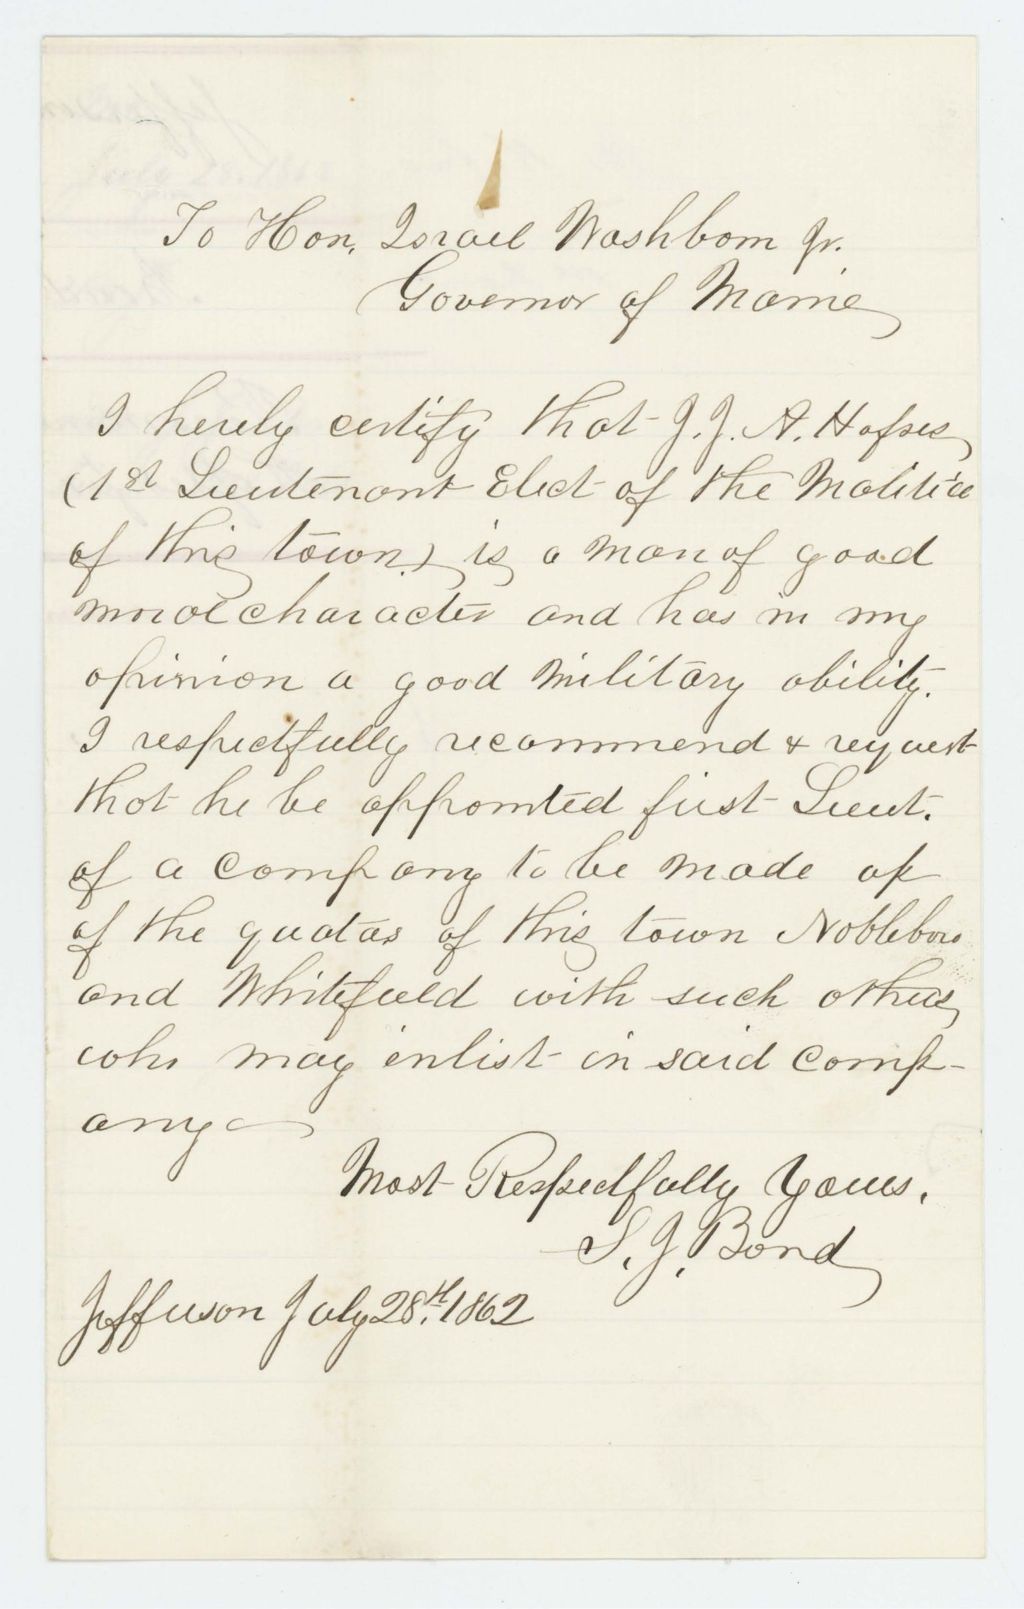 To Hon. Israel Washborn Jr.
Governor of Maine
I hereby certify that J. J. A. Hofses
(1st Lieutenant Elect of the Malitia
of this town) is a man of good
moral character and has in my
opinion a good military ability.
I respectfully recommend & request
that he be appointed first Lieut.
of a company to be made up
of the quotas of this town Nobleboro
and Whitefield with such others
who may enlist in said comp-
any
Most Respectfully Yours,
S. J. Bond
Jefferson July 28th, 1862